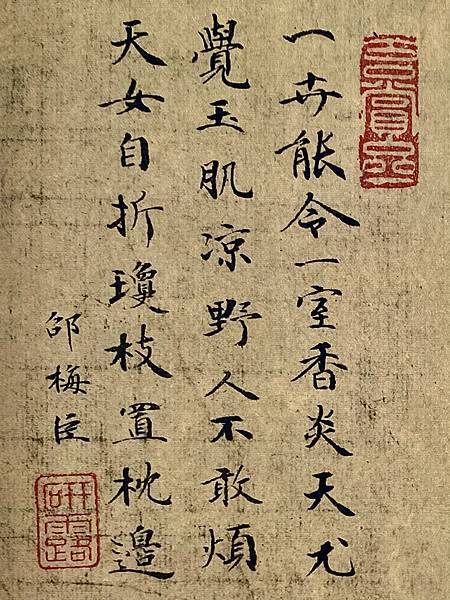 一卉能令一室香炎天尤
覺玉肌凉野人不敢煩
天女自折瓊枝置枕邊
邵梅臣
研露